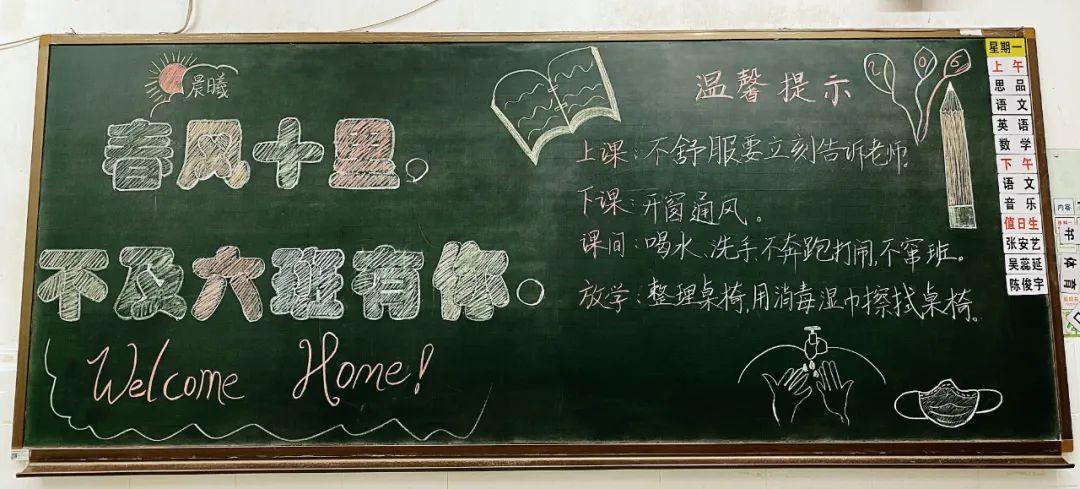 晨曦
春风十里，
不及六班有你。
Welcome Home!
温馨提示
206
上课：不舒服要立刻告诉老师。
下课：开窗通风。
课间：喝水、洗手、不奔跑打闹，不窜班。
放学：整理桌椅，用消毒湿巾擦找桌椅。
星期一
上午
思品
语文
英语
数学
下午
语文
音乐
值日生
张安艺
吴蕊延
陈俊宇
内容
书
体育